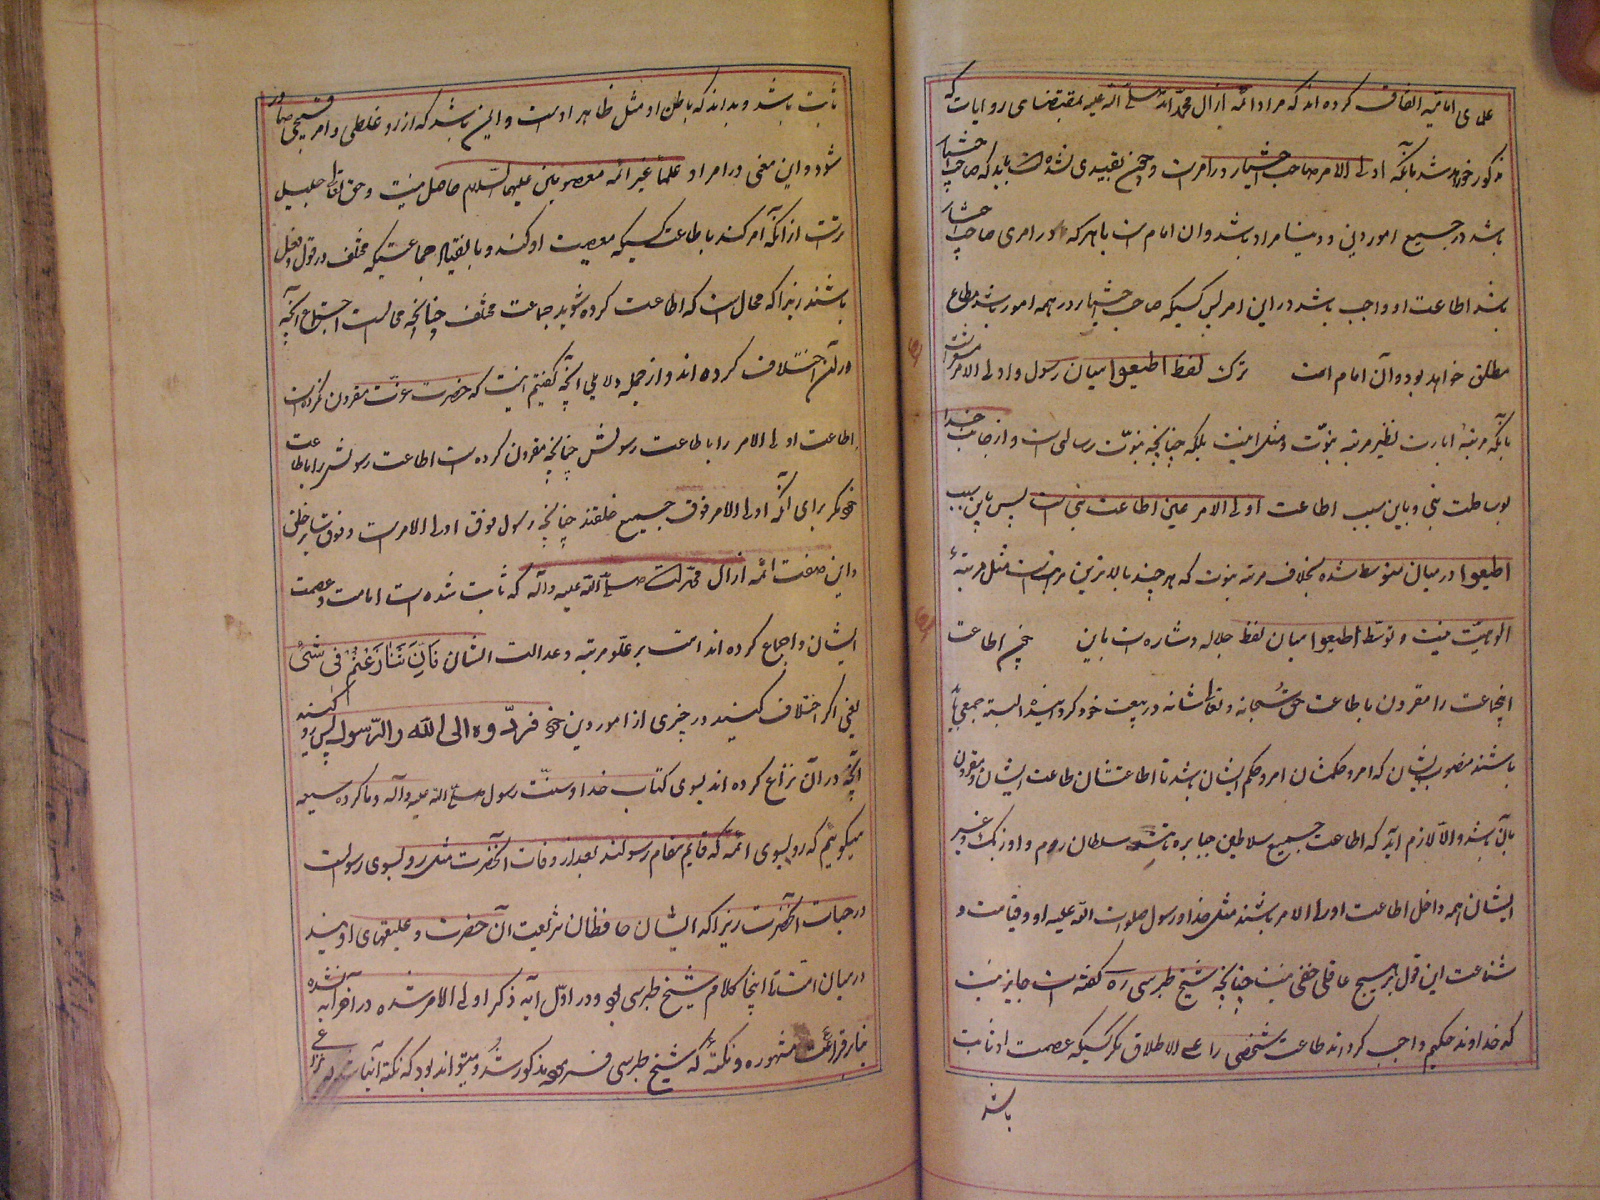 علمای امامیه اتفاق کرده اند که مراد ائمه از آل محمد اند صلی الله علیه بمقتضای روایات که
مذکور خواهد شد بآنکه اولی الامر صاحب اختیار در امر است و چون تقییدی نشده است باید که صاحب اختیار
باشد در جمیع امور دین و دنیا مراد باشد و آن امام است یا هر که در امری صاحب اختیار
باشد اطاعت او واجب باشد در این امر پس کسیکه صاحب اختیار در همه امور باشد مطاع
مطلق خواهد بود و آن امام است ترک لفظ اطیعوا میان رسول و اولی الامر
بآنکه مرتبهٔ امارت نظیر مرتبه نبوّت و مثل این نیست بلکه چنانچه نبوّت رسالتی است و از جانب خدا
بوساطت نبی و باین سبب اطاعت اولی الامر عین اطاعت نبی است پس باین سبب
اطیعوا در میان متوسط نشده بخلاف مرتبه نبوت که هر چند بالاترین مراتب است مثل مرتبهٔ
الوهیّت نیست و توسّط اطیعوا میان لفظ جلاله و اشاره است باین چون اطاعت
اینجماعت را مقرون باطاعت حق سبحانه و تعالی شانه در پیعت خود گردانیده البته جمعی باید
باشند منصوب ایشان که امر و حکمشان امر و حکم ایشان باشد تا اطاعتشان طاعت ایشان و مقرون
بآن باشد و الّا لازم آید که اطاعت جمیع سلاطین جابره مانند سلطان روم و اوزبک و غیر
ایشان همه داخل اطاعت اولی الامر باشند مثل خدا و رسول صلوات الله علیه او و قیامت و
شناعت این قول بر هیچ عاقلی خفی نیست چنانچه شیخ طبرسی ره گفته است جایز نیست
که خداوند حکیم واجب گرداند طاعت شخصی را علی الاطلاق مگر کسیکه عصمت او ثابت
باشد
ثابت باشد و بداند که باطن او مثل ظاهر اوست و ایمن باشد که از رو غلطی و امر قبیحی صادر
شود و این معنی در امرا و علما غیر ائمه معصومین علیهم السلام حاصل نیست و حق تعالی جلیل
تر است از آنکه امر کند باطاعت کسیکه معصیت او کند و یا بانقیاد جماعتیکه مختلف در قول و فعل
باشند زیرا که محال است که اطاعت کرده شوید جماعت مختلف چنانچه محالست اجتماع آنچه
در آن اختلاف کرده اند و از جمله دلایلی آنچه گفتیم اینست که حضرت عزّت مقرون نکرده است
اطاعت اولی الامر را باطاعت رسولش چنانچه مقرون کرده است اطاعت رسولش را باطاعت
خود مگر برای آنکه اولی الامر فوق جمیع خلقند چنانچه رسول فوق اولی الامر است و فوق سایر خلق
و این صفت ائمه از آل محمد است صلی الله علیه وآله که ثابت شده است امامت و عصمت
ایشان و اجماع کرده اند امت بر علو مرتبه و عدالت ایشان فَاِنْ تَنَازَعْتُمْ فی شیْءٍ
یعنی اگر اختلاف کنید در چیزی از امور دین خود فردّوه الی الله والرّسول پس رو کنید
آنچه در آن نزاع کرده اند بسوی کتاب خدا و سنّت رسول صلی الله علیه وآله و ما گروه شیعه
میگوئیم که رو بسوی ائمه که قایم مقام رسولند بعد از وفات آنحضرت مثل رو بسوی رسولست
در حیات آنحضرت زیرا که ایشان حافظان شریعت آن حضرت و خلیفهای اویند
در میان امت تا اینجا کلام شیخ طبرسی بود و در اوّل آیه ذکر اولی الامر شده در آخر آیه نشده
بنابر قرائت مشهوره و نکتهٔ که شیخ طبرسی فرموده مذکور شد و میتواند بود که نکته